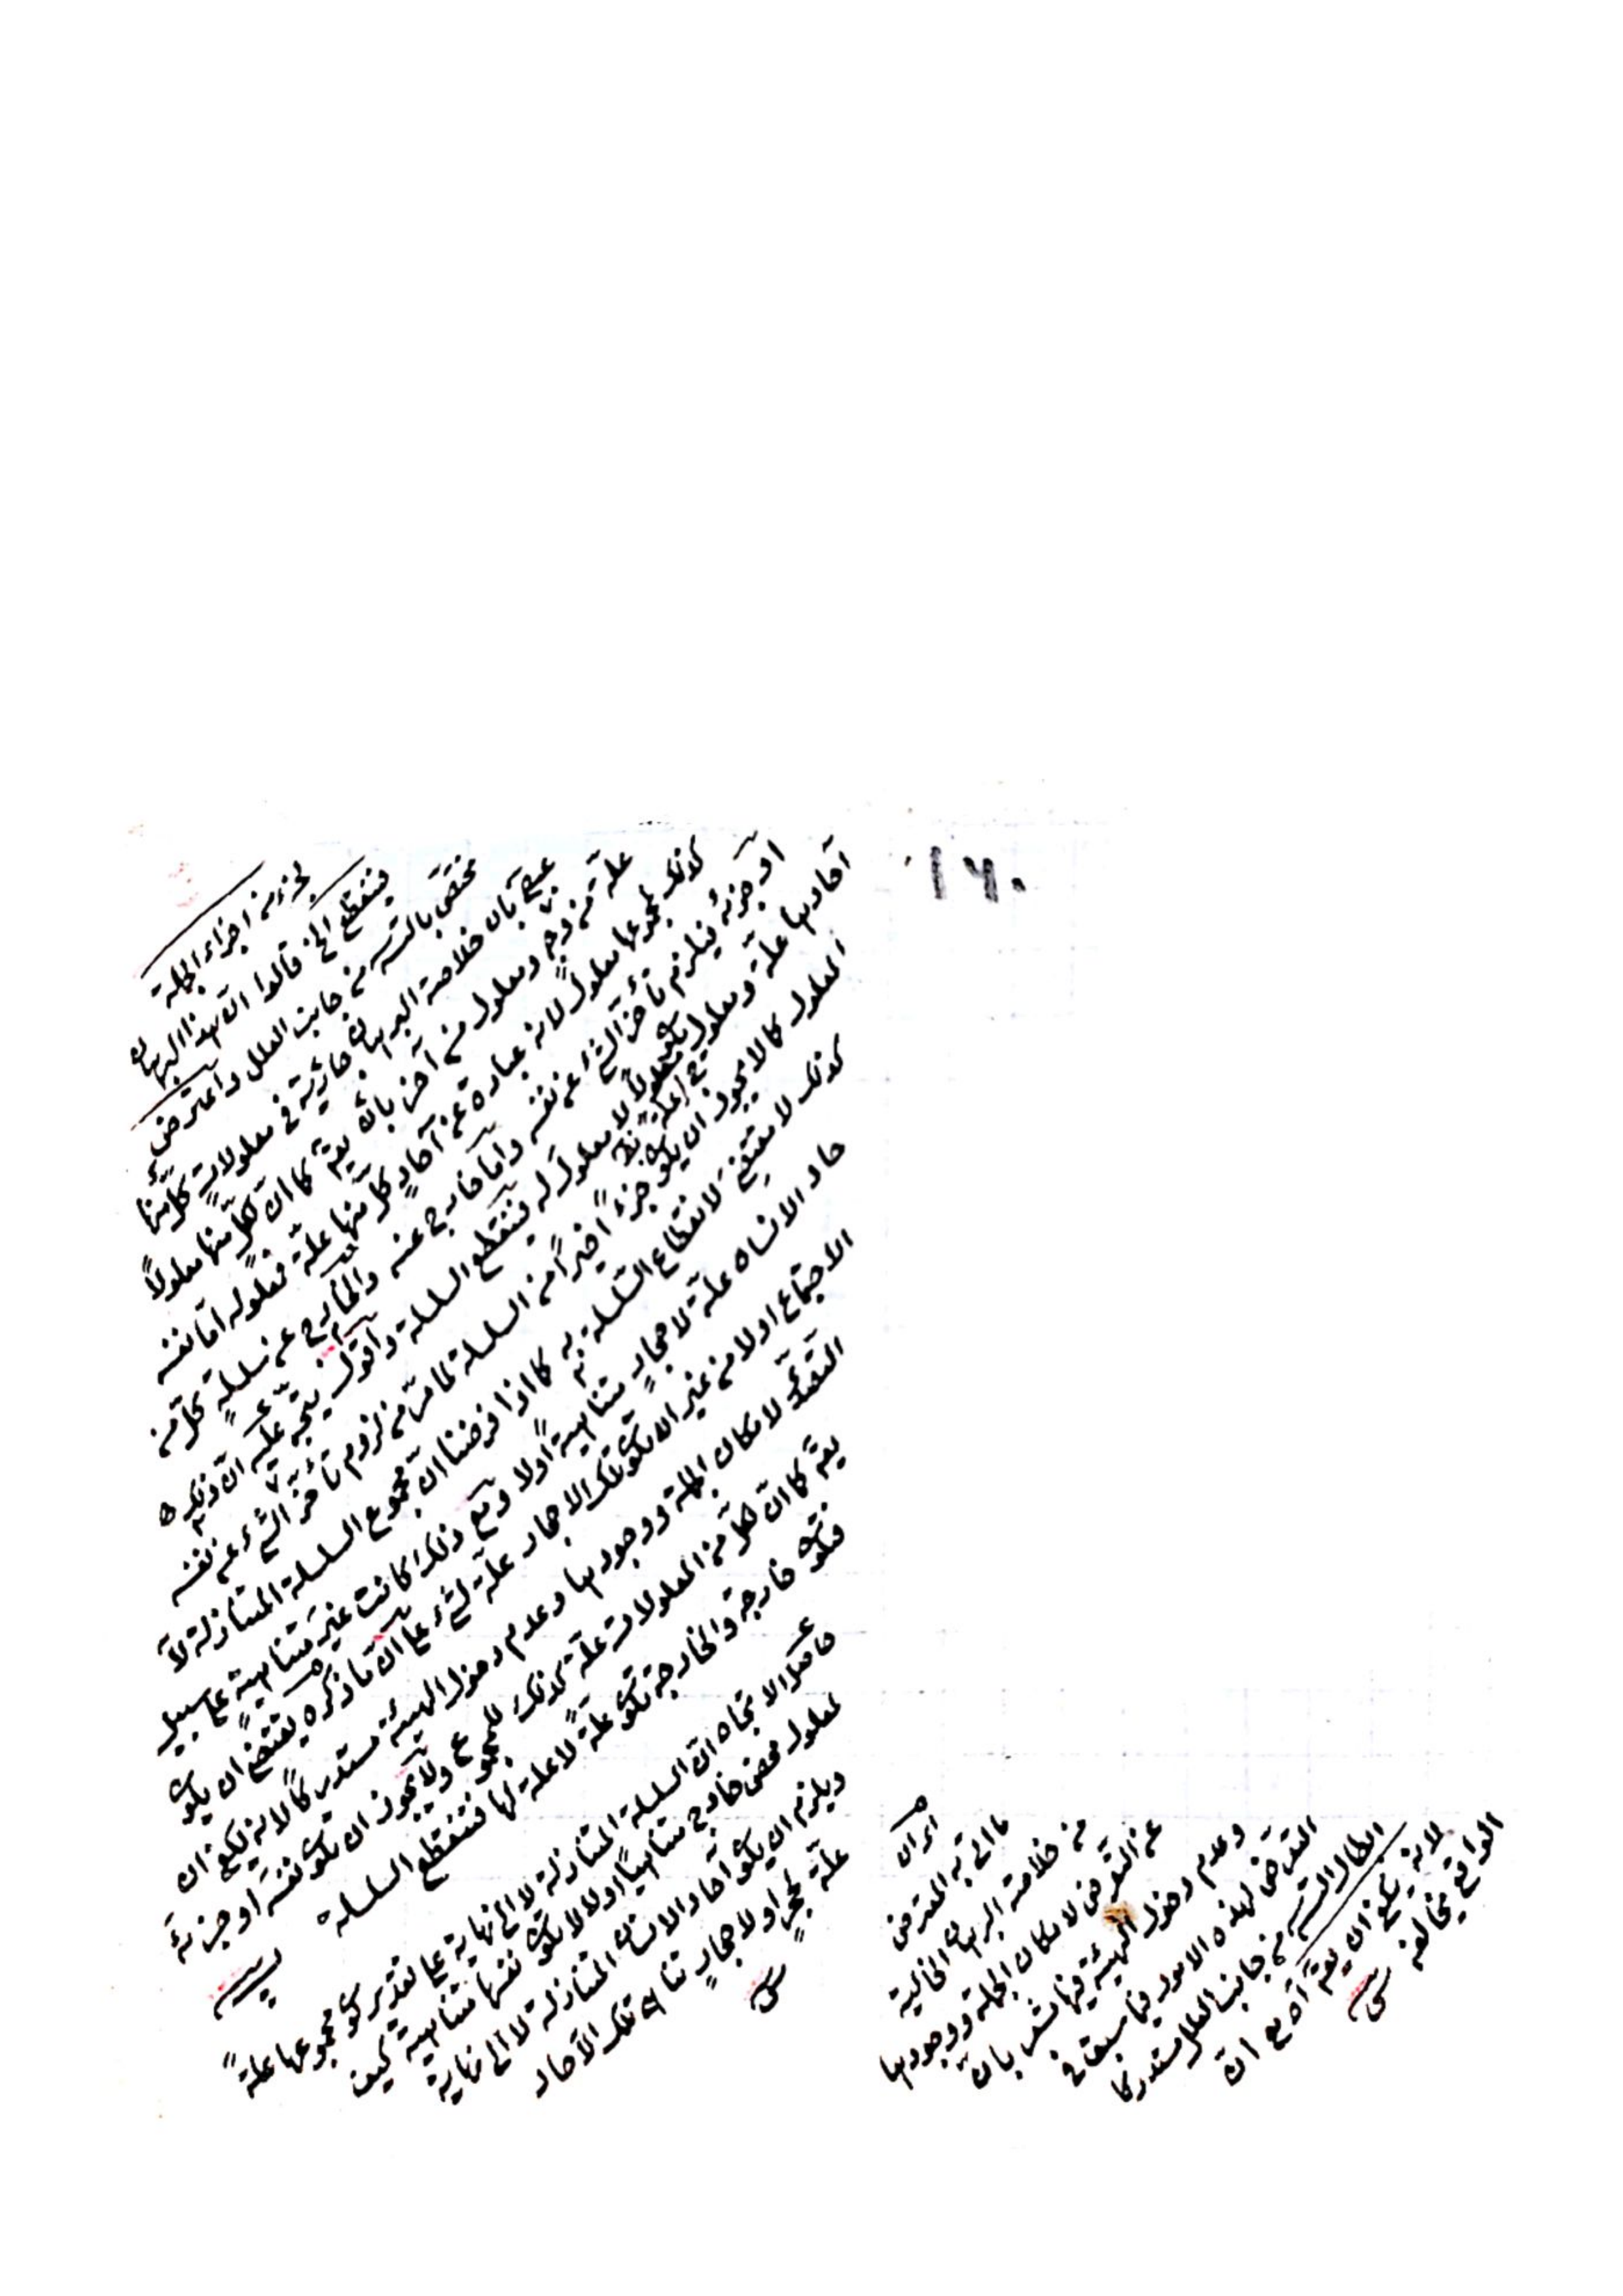 ١٦٠
لجزء من اجزاء الجملة
فينقطع الخ قالوا ان هذا البرهان
مختص بالتسـ من جانب العلل واعترض
عصـ بان خلاصة البرهان جارية في معلولات كل منها
علة من وجه ومعلول من آخر بانه يقـ كما ان كل منها معلولاً
كذلك مجموعها معلول لانه عبارة عن آحاد كل منها علة فمعلوله اما نفسه
او جزئه فيلزم تأخر الشئ عن نفسه واما خارج عنه والخارج عن سلسلة كل من
آحادها علة ومعلول يكون معلولاً لا معلول له فينقطع السلسلة واقول يتجه عليه ان ذلك
المعلول كما لا يجوز ان يكون جزءً اخيراً من السلسلة لما مر من لزوم تأخر الشئ عن نفسه
كذلك لا يقتضي لانقطاع السلسلة به كما اذا فرضنا ان مجموع السلسلة المتنازلة لآ
حاد الانسان علة لاحجار متناهية اولا ومع ذلك كانت غير متناهية على سبيل
الاجتماع اولا من غير ان يكون تلك الاحجار علة لشئ على ان ما ذكره يقتضي ان يكون
التعرض لامكان الجملة ووجودها وعدم دخول الهيئة مستدركاً لانه يكفي ان
يقـ كما ان كل من المعلولات علة كذلك المجموع ولا يجوز ان تكون نفسه او جزئه
فتكون خارجة والخارجة تكون علة لا علة لها فتنقطع السلسلة
حاصل الاتجاه ان السلسلة المتنازلة لا الى نهاية على تقدير كون مجموعها علة
لمعلول محض خارج متناهياً اولا لا تكون نفسها متناهية كيف
ويلزم ان يكون آحاد الانسان المتنازلة لا الى نهاية
علة لحجر او لاحجار تناهى تلك الآحاد
ما اتى به المعترض
من خلاصة البرهان الخالية
عن التعرض لامكان الجملة ووجودها
وعدم دخول الهيئة فيها تشـ بان
التعرض لهذه الامور فيما سبق في
ابطال التسـ من جانب العلل مستدركا
لانه يكفي ان يقـ آه مع ان
الواقع يخالفه